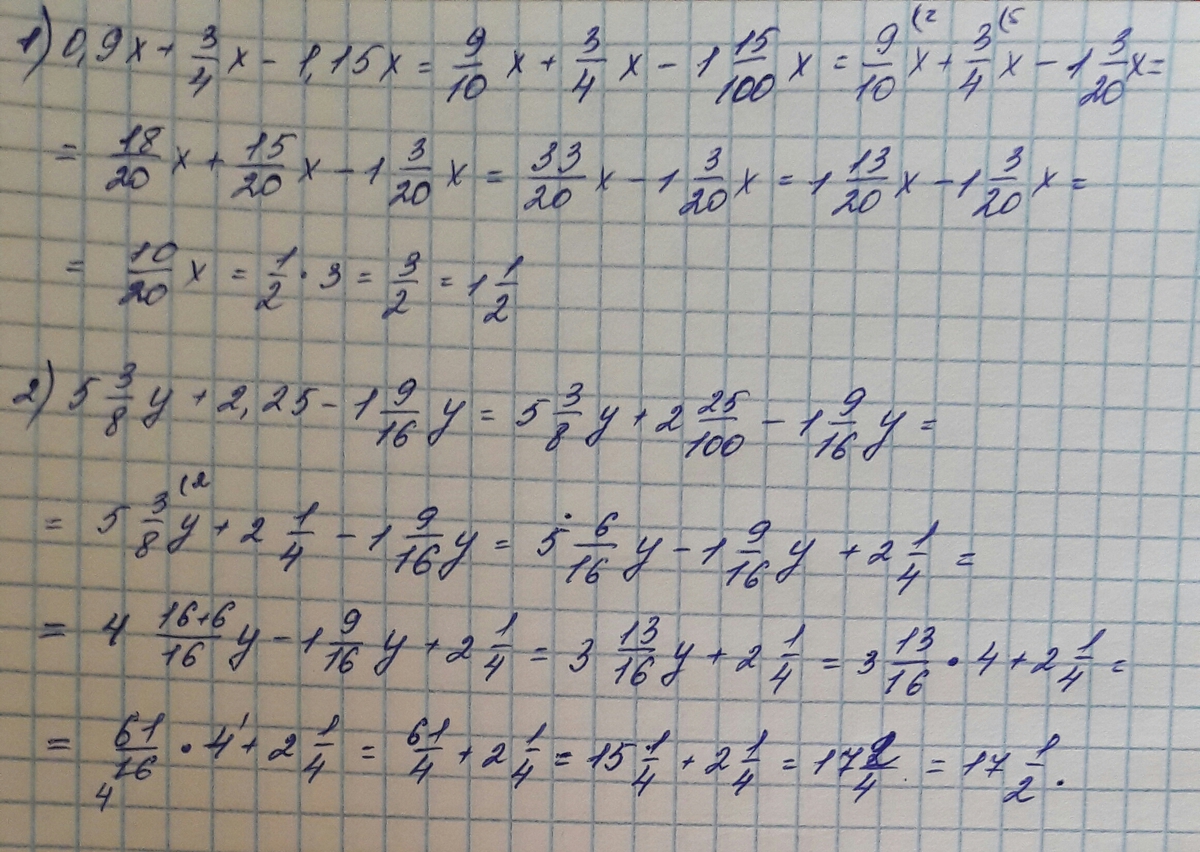 1) 0,9x + 3/4 x - 1,15x = 9/10 x + 3/4 x - 1 15/100 x = 9/10 (2 x + 3/4 (5 x - 1 3/20 x =
= 18/20 x + 15/20 x - 1 3/20 x = 33/20 x - 1 3/20 x = 1 13/20 x - 1 3/20 x =
= 10/20 x = 1/2 · 3 = 3/2 = 1 1/2
2) 5 3/8 y + 2,25 - 1 9/16 y = 5 3/8 y + 2 25/100 - 1 9/16 y =
= 5 3/8 (2 y + 2 1/4 - 1 9/16 y = 5 6/16 y - 1 9/16 y + 2 1/4 =
= 4 16+6/16 y - 1 9/16 y + 2 1/4 = 3 13/16 y + 2 1/4 = 3 13/16 · 4 + 2 1/4 =
= 61/16 4 · 4 1 + 2 1/4 = 61/4 + 2 1/4 = 15 1/4 + 2 1/4 = 17 2/4 = 17 1/2 .